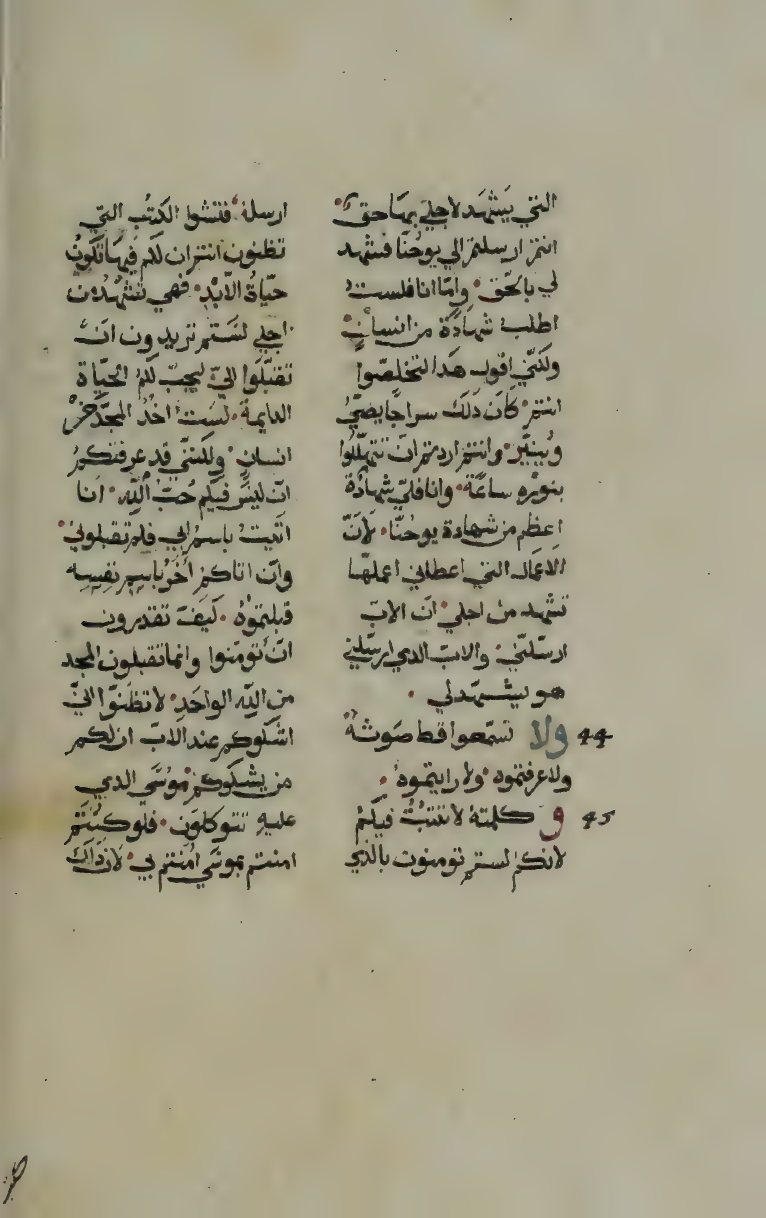 التي يَشهَد لاجلي بهَا حق
انتم ارسلتم الي يوحنّا فشهد
لي بالحَق وامّا انا فلست
اطلب شهَادَة من انسان
ولكنّي اقول هَدا لتخلصُوا
انتم كان ذَلَك سراجًا يضيُ
ويُنيّر وانتم اردتم انّ تتهلّلُوا
بنوره ساعَة وانا فلي شهادَة
اعظم من شهادة يوحُنّا لانّ
الاعمال التي اعطاني اعملهَا
تشهد من اجلي انّ الابَ
ارسَلني والابّ الدي ارسَلني
هو يشهَدلي
44 ولا تسمَعوا قط صَوته
ولا عرفتموه ولا رايتموه
45 و كلمتهُ لا تثبتُ فيكم
لانكم لستم تومنوت بالذي
ارسله ففتشوا الكتُب التي
تظنون انتم ان لكم فيهَا تكونُ
حيّاةُ الاَبْد فهي تشهُدُ من
اجلي لسَتم تريدون انْ
تقبَلُوا اليّ ليجبّ لكمُ الحيَاة
الدايمة لسَت اخدُ المجدَ من
انسان ولكنّي قد عرفتكمُ
انّ ليسَ فيكم حُبّ الله انا
اتَيتُ باسم ابي فلم تقبلوني
وانّ اتاكم اخرُ باسم نفسِه
قبلتموُهُ كيَف تقدرون
انّ تومنوا وانما تقبلون المجد
من الله الواحَد لا تظنّوا انيّ
اشكوكم عند الابّ ان لكم
من يشكوكم موسَي الدي
عليه تتوكلوَن فلو كنُتم
امنتم بموسَي امُنتم بي لان ذاك